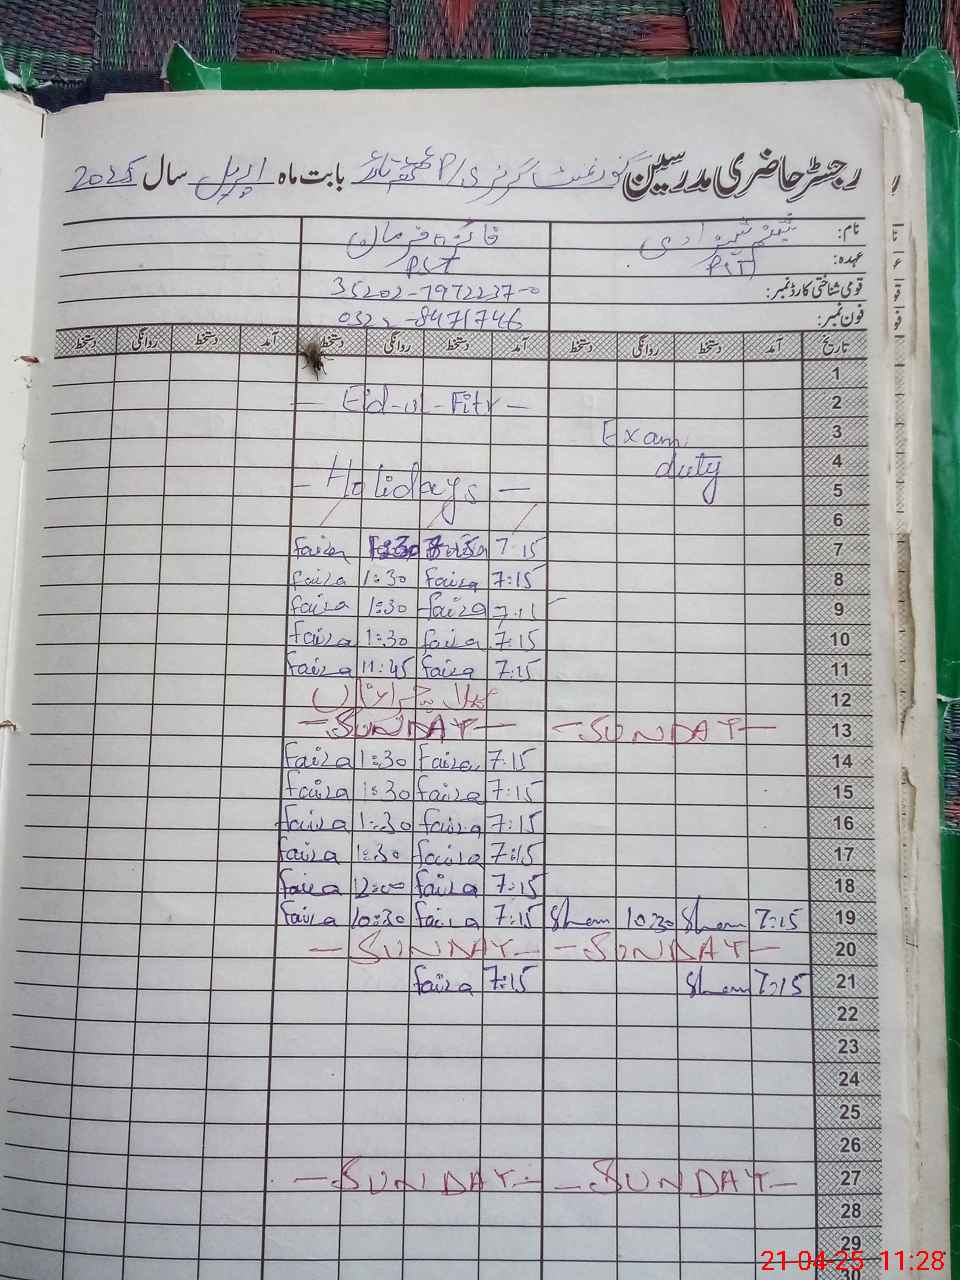 رجسٹر حاضری مدرسین گورنمنٹ گرلز P/ بابت ماہ اپریل سال 2025
نام: شبنم شہزادی فائزہ فرمان
عہدہ: PST PST
قومی شناختی کارڈ نمبر: 35202-7972237-0
فون نمبر: 0322-8471746
تاریخ آمد دستخط روانگی دستخط آمد دستخط روانگی دستخط آمد دستخط روانگی دستخط
1
2 — Eid-ul-Fitr —
3 Exam
4 duty
5 — Holidays —
6
7 7:15 faiza 1:30 faiza
8 7:15 faiza 1:30 faiza
9 7:15 faiza 1:30 faiza
10 7:15 faiza 1:30 faiza
11 7:15 faiza 11:45 faiza
12
13 — SUNDAY — — SUNDAY —
14 7:15 faiza 1:30 faiza
15 7:15 faiza 1:30 faiza
16 7:15 faiza 1:30 faiza
17 7:15 faiza 1:30 faiza
18 7:15 faiza 12:00 faiza
19 7:15 10:30 7:15 faiza 10:30 faiza
20 — SUNDAY — — SUNDAY —
21 7:15 7:15 faiza
22
23
24
25
26
27 — SUNDAY — — SUNDAY —
28
29
30
21-04-25 11:28